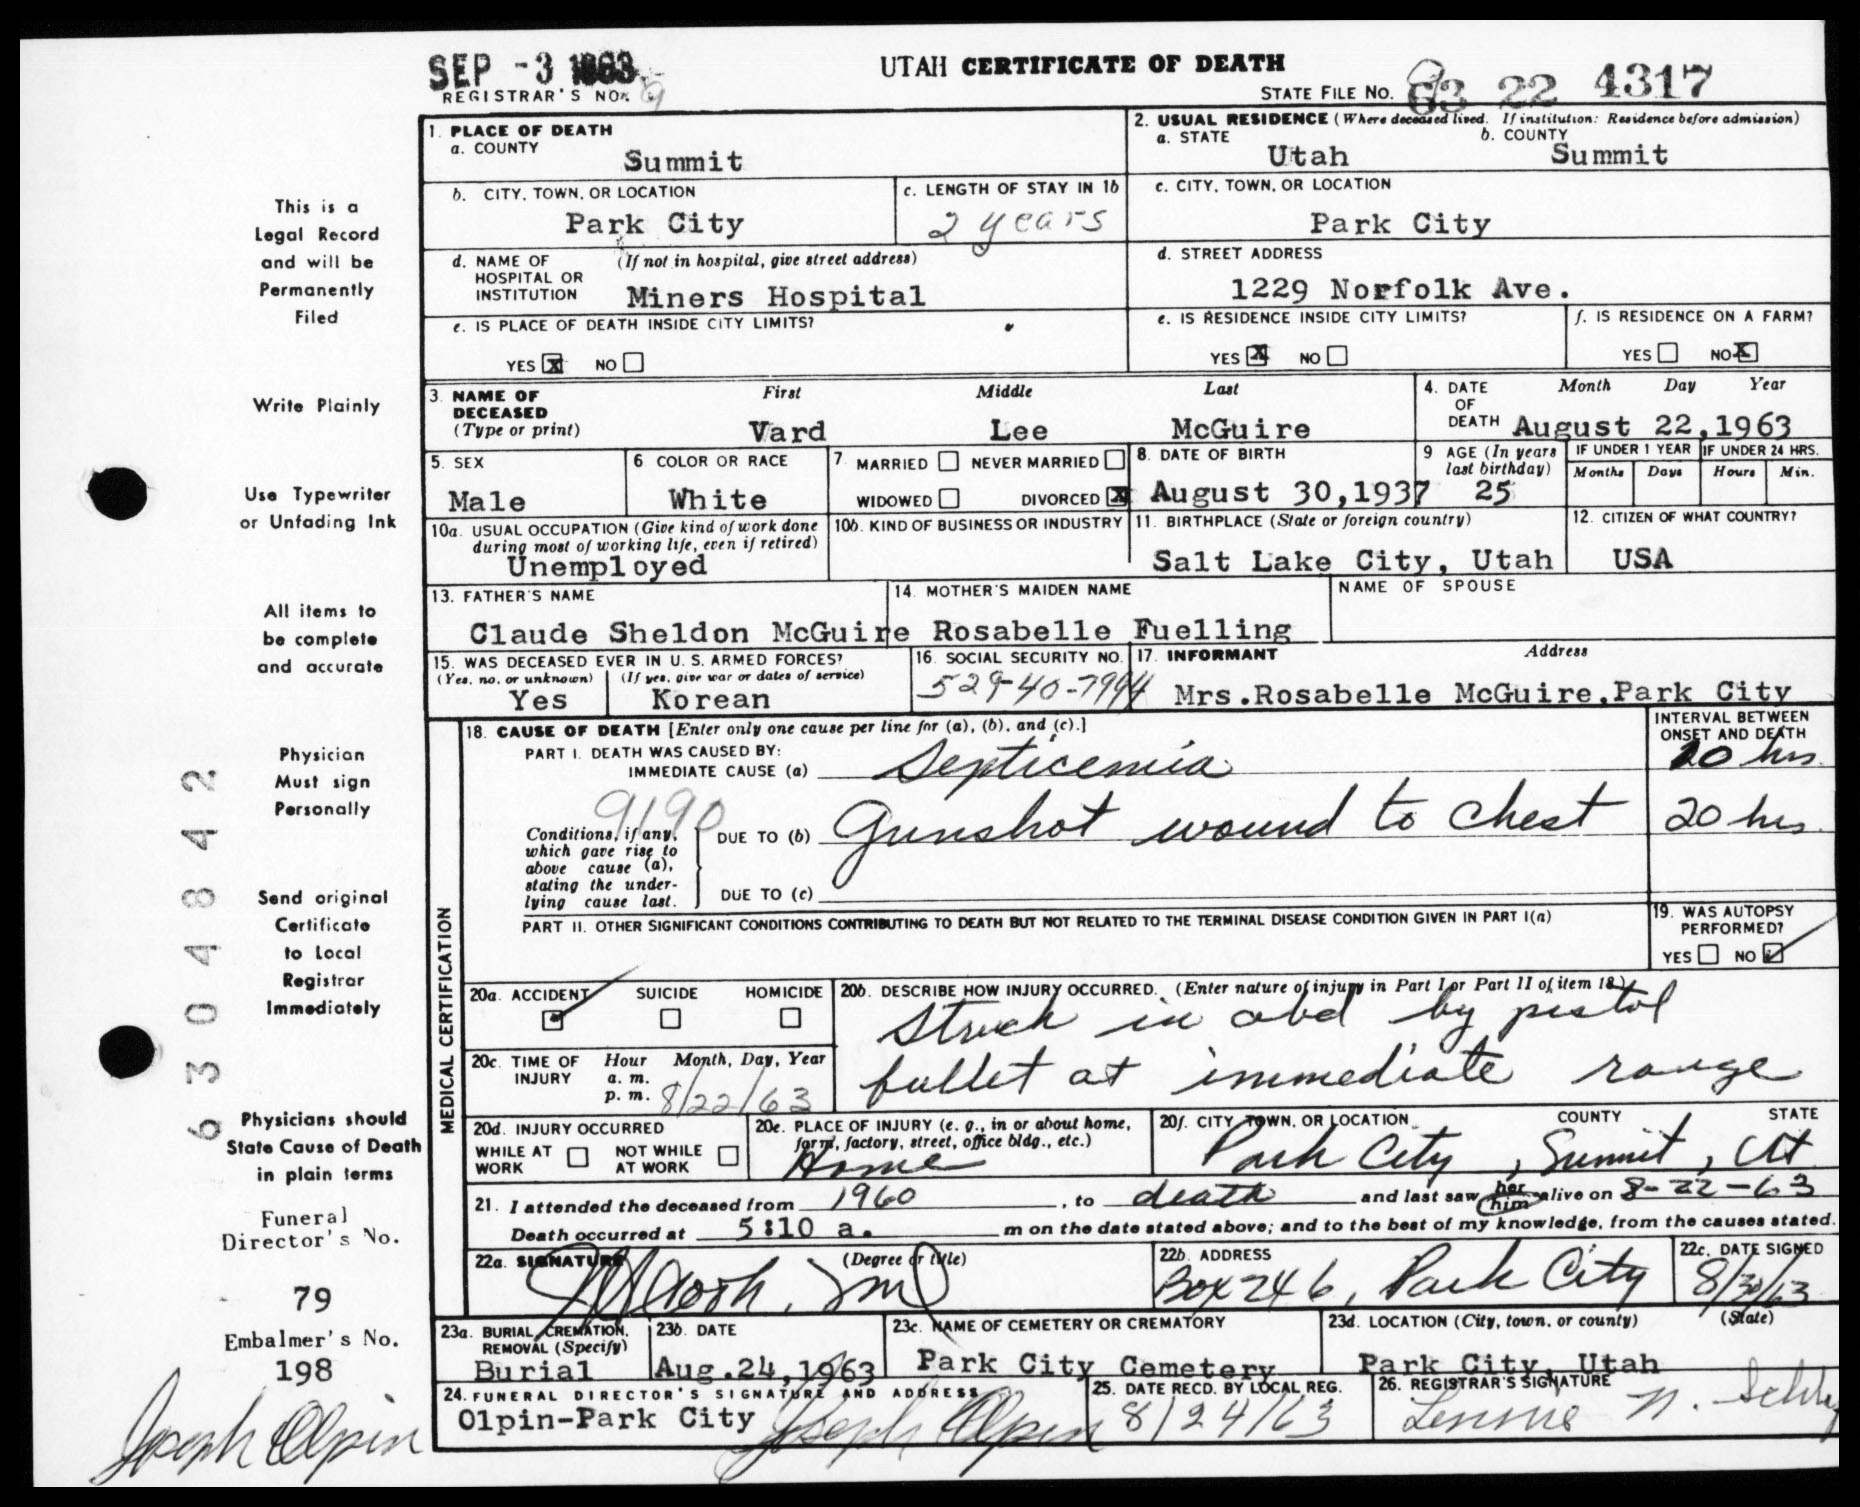 SEP -3 1963
UTAH CERTIFICATE OF DEATH
REGISTRAR'S NO.
STATE FILE NO. 63 22 4317
This is a
Legal Record
and will be
Permanently
Filed
Write Plainly
Use Typewriter
or Unfading Ink
All items to
be complete
and accurate
Physician
Must sign
Personally
Send original
Certificate
to Local
Registrar
Immediately
Physicians should
State Cause of Death
in plain terms
Funeral
Director's No.
79
Embalmer's No.
198
Joseph Olpin
6304842
1. PLACE OF DEATH
a. COUNTY
Summit
2. USUAL RESIDENCE (Where deceased lived. If institution: Residence before admission)
a. STATE b. COUNTY
Utah Summit
b. CITY, TOWN, OR LOCATION
Park City
c. LENGTH OF STAY IN 1b
2 years
c. CITY, TOWN, OR LOCATION
Park City
d. NAME OF (If not in hospital, give street address)
HOSPITAL OR
INSTITUTION Miners Hospital
d. STREET ADDRESS
1229 Norfolk Ave.
e. IS PLACE OF DEATH INSIDE CITY LIMITS?
YES X NO
e. IS RESIDENCE INSIDE CITY LIMITS?
YES X NO
f. IS RESIDENCE ON A FARM?
YES NO X
3. NAME OF First Middle Last
DECEASED
(Type or print) Vard Lee McGuire
4. DATE Month Day Year
OF
DEATH August 22,1963
5. SEX
Male
6 COLOR OR RACE
White
7. MARRIED NEVER MARRIED
WIDOWED DIVORCED X
8. DATE OF BIRTH
August 30,1937
9 AGE (In years
last birthday)
25
IF UNDER 1 YEAR IF UNDER 24 HRS.
Months Days Hours Min.
10a. USUAL OCCUPATION (Give kind of work done
during most of working life, even if retired)
Unemployed
10b. KIND OF BUSINESS OR INDUSTRY
11. BIRTHPLACE (State or foreign country)
Salt Lake City, Utah
12. CITIZEN OF WHAT COUNTRY?
USA
13. FATHER'S NAME
Claude Sheldon McGuire
14. MOTHER'S MAIDEN NAME
Rosabelle Fuelling
NAME OF SPOUSE
15. WAS DECEASED EVER IN U. S. ARMED FORCES?
(Yes, no, or unknown) (If yes, give war or dates of service)
Yes Korean
16. SOCIAL SECURITY NO.
529-40-7994
17. INFORMANT Address
Mrs.Rosabelle McGuire,Park City
MEDICAL CERTIFICATION
18. CAUSE OF DEATH [Enter only one cause per line for (a), (b), and (c).]
INTERVAL BETWEEN
ONSET AND DEATH
PART I. DEATH WAS CAUSED BY:
IMMEDIATE CAUSE (a) Septicemia
hrs.
9190
Conditions, if any,
which gave rise to
above cause (a),
stating the under-
lying cause last.
DUE TO (b) Gunshot wound to chest 20 hrs.
DUE TO (c)
PART II. OTHER SIGNIFICANT CONDITIONS CONTRIBUTING TO DEATH BUT NOT RELATED TO THE TERMINAL DISEASE CONDITION GIVEN IN PART I(a)
19. WAS AUTOPSY
PERFORMED?
YES NO
20a. ACCIDENT SUICIDE HOMICIDE
20b. DESCRIBE HOW INJURY OCCURRED. (Enter nature of injury in Part I or Part II of item 18.)
Struck in abd by pistol
bullet at immediate range
20c. TIME OF Hour Month, Day, Year
INJURY a. m.
p. m. 8/22/63
20d. INJURY OCCURRED
WHILE AT NOT WHILE
WORK AT WORK
20e. PLACE OF INJURY (e. g., in or about home,
farm, factory, street, office bldg., etc.)
Home
20f. CITY, TOWN, OR LOCATION COUNTY STATE
Park City, Summit, Ut
21. I attended the deceased from 1960, to death and last saw her him alive on 8-22-63
Death occurred at 5:10 a. m on the date stated above; and to the best of my knowledge, from the causes stated.
22a. SIGNATURE (Degree or title)
MD
22b. ADDRESS
Box 246, Park City
22c. DATE SIGNED
8/30/63
23a. BURIAL, CREMATION,
REMOVAL (Specify)
Burial
23b. DATE
Aug.24,1963
23c. NAME OF CEMETERY OR CREMATORY
Park City Cemetery
23d. LOCATION (City, town, or county) (State)
Park City, Utah
24. FUNERAL DIRECTOR'S SIGNATURE AND ADDRESS
Olpin-Park City Joseph Olpin
25. DATE RECD. BY LOCAL REG.
8/24/63
26. REGISTRAR'S SIGNATURE